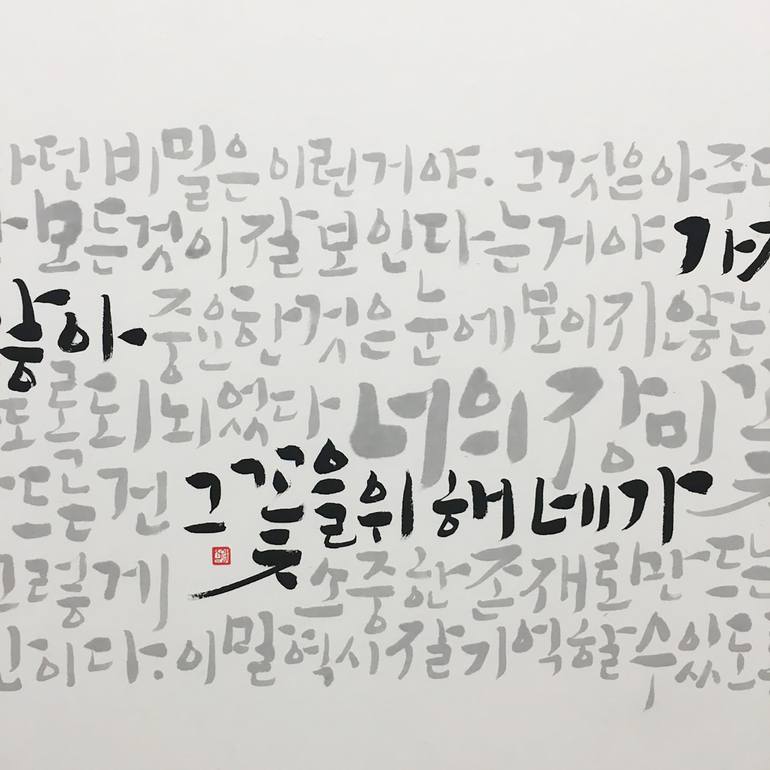 라던 비밀은 이런거야. 그것은 아주
모든것이 잘 보인다는거야 가
않아 중요한것은 눈에 보이지 않는
도록 되뇌었다 너의 장미꽃
그 꽃을 위해 네가
만드는건
그렇게 소중한 존재로 만드는
이다. 이말 역시 잘 기억할 수 있도